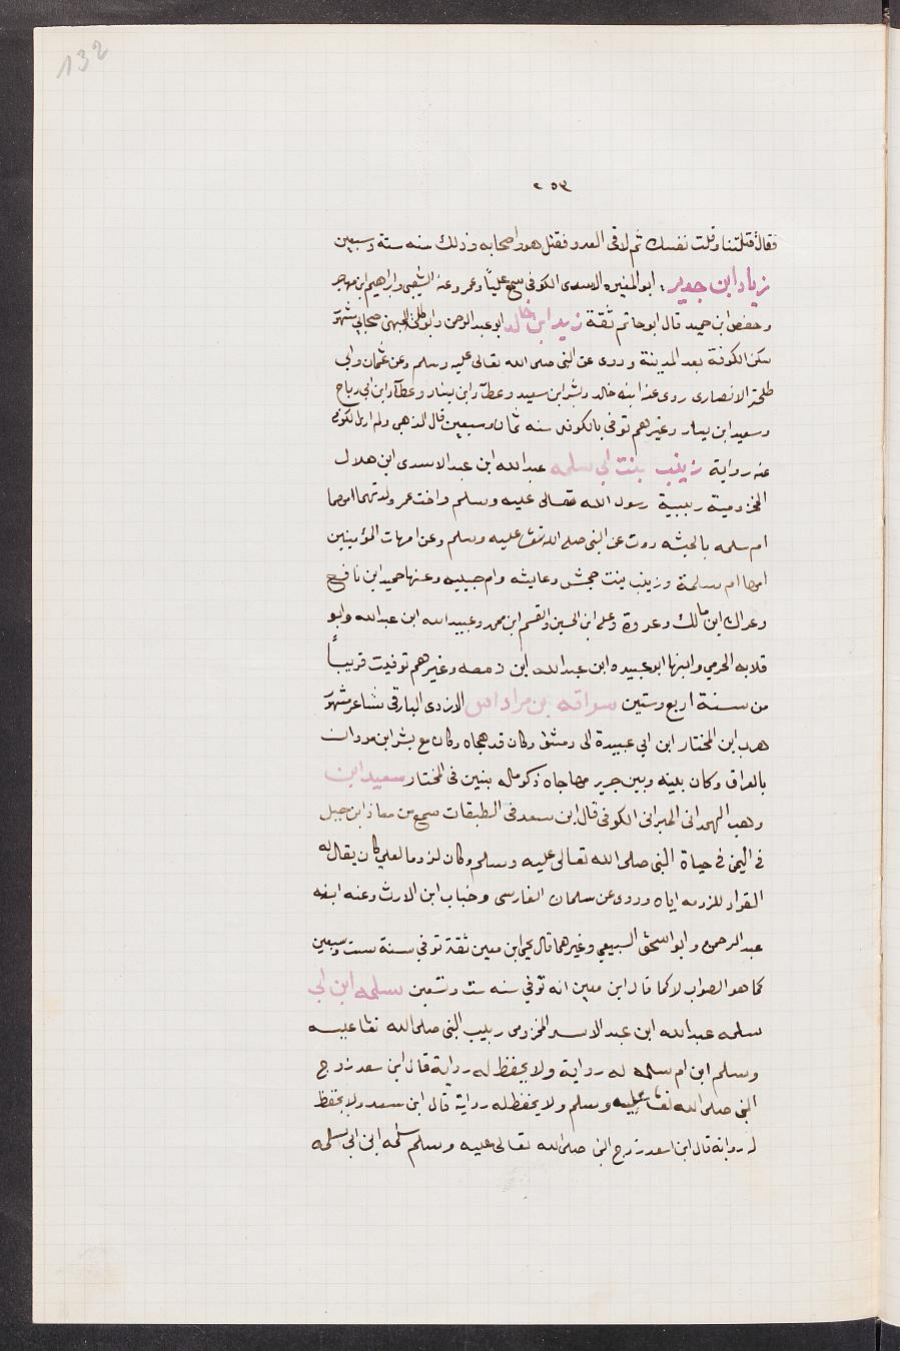 132
٢٥٩
فقال قتلتنا وقلت نفسك ثم لاقى العدو فقتل هو واصحابه وذلك سنه ستة وسبعين
زياد ابن جدير : ابو المغيره الاسدى الكوفى سمع عليًا وعمر وعنه الشعبى وابراهيم ابن مهاجر
وحفص ابن حميد قال ابو حاتم ثقة زيد ابن خالد ابو عبد الرحمن وابو طلحة الجهنى صحابى مشهور
سكن الكوفة بعد المدينة وروى عن النبى صلى الله تعالى عليه وسلم وعن عثمان وابى
طلحة الانصارى روى عنه ابنه خالد وبشر ابن سعيد وعطآ ابن يسار وعطآ ابن ابى رباح
وسعيد ابن يسار وغيرهم توفى بالكوفه سنه ثمان وسبعين قال الذهبى ولم ار للكوفى
عنه رواية زينب بنت ابى سلمه عبد الله ابن عبد الاسدى ابن هلال
المخزومية ربيبة رسول الله تعالى عليه وسلم واخت عمر ولدتهما امهما
ام سلمه بالحبشه روت عن النبى صلى الله تعا عليه وسلم وعن امهات المؤمينين
امها ام سلمة وزينب بنت جحش وعايشه وام حبيبه وعنها حميد ابن نافع
وعراك ابن مالك وعروة وعلى ابن الحسين والقسم ابن محمد وعبيد الله ابن عبد الله وابو
قلابه الجرمي وابنها ابو عبيده ابن عبد الله ابن زمعه وغيرهم توفيت قريباً
من سنة اربع وستين سراقه بن مراداس الازدى البارقى شاعر مشهور
هرب ابن المختار ابن ابي عبيدة الى دمشق وكان قد هجاه وكان مع بشر ابن مروان
بالعراق وكان بينه وبين جرير مهاجاه ذكر ماله بنين فى المختار سعيد ابن
وهب الهمدانى الخيرانى الكوفى قال ابن سعد فى الطبقات سمع من معاذ ابن جبل
فى اليمن فى حياة النبى صلى الله تعالى عليه وسلم وكان لزوما لعلى كان يقال له
القراد للزومه اياه وروى عن سلمان الفارسى وخباب ابن الارث وعنه ابنه
عبد الرحمن وابو اسحق السبيعي وغيرهما قال يحيى ابن معين ثقة توفي سنة ست وسبعين
كما هو الصواب لا كما قال ابن معين انه توفي سنه ست وتسعين سلمه ابن ابى
سلمه عبد الله ابن عبد الاسد المخزومى ربيب النبى صلى الله تعا عليه
وسلم ابن ام سلمه له رواية ولا يحفظ له رواية قال ابن سعد زوج
النبى صلى الله تعا عليه وسلم ولا يحفظ له رواية قال ابن سعد ولا يحفظ
له رواية قال ابن اسعد زوج النبى صلى الله تعالى عليه وسلم سلمه ابن ابى سلمه